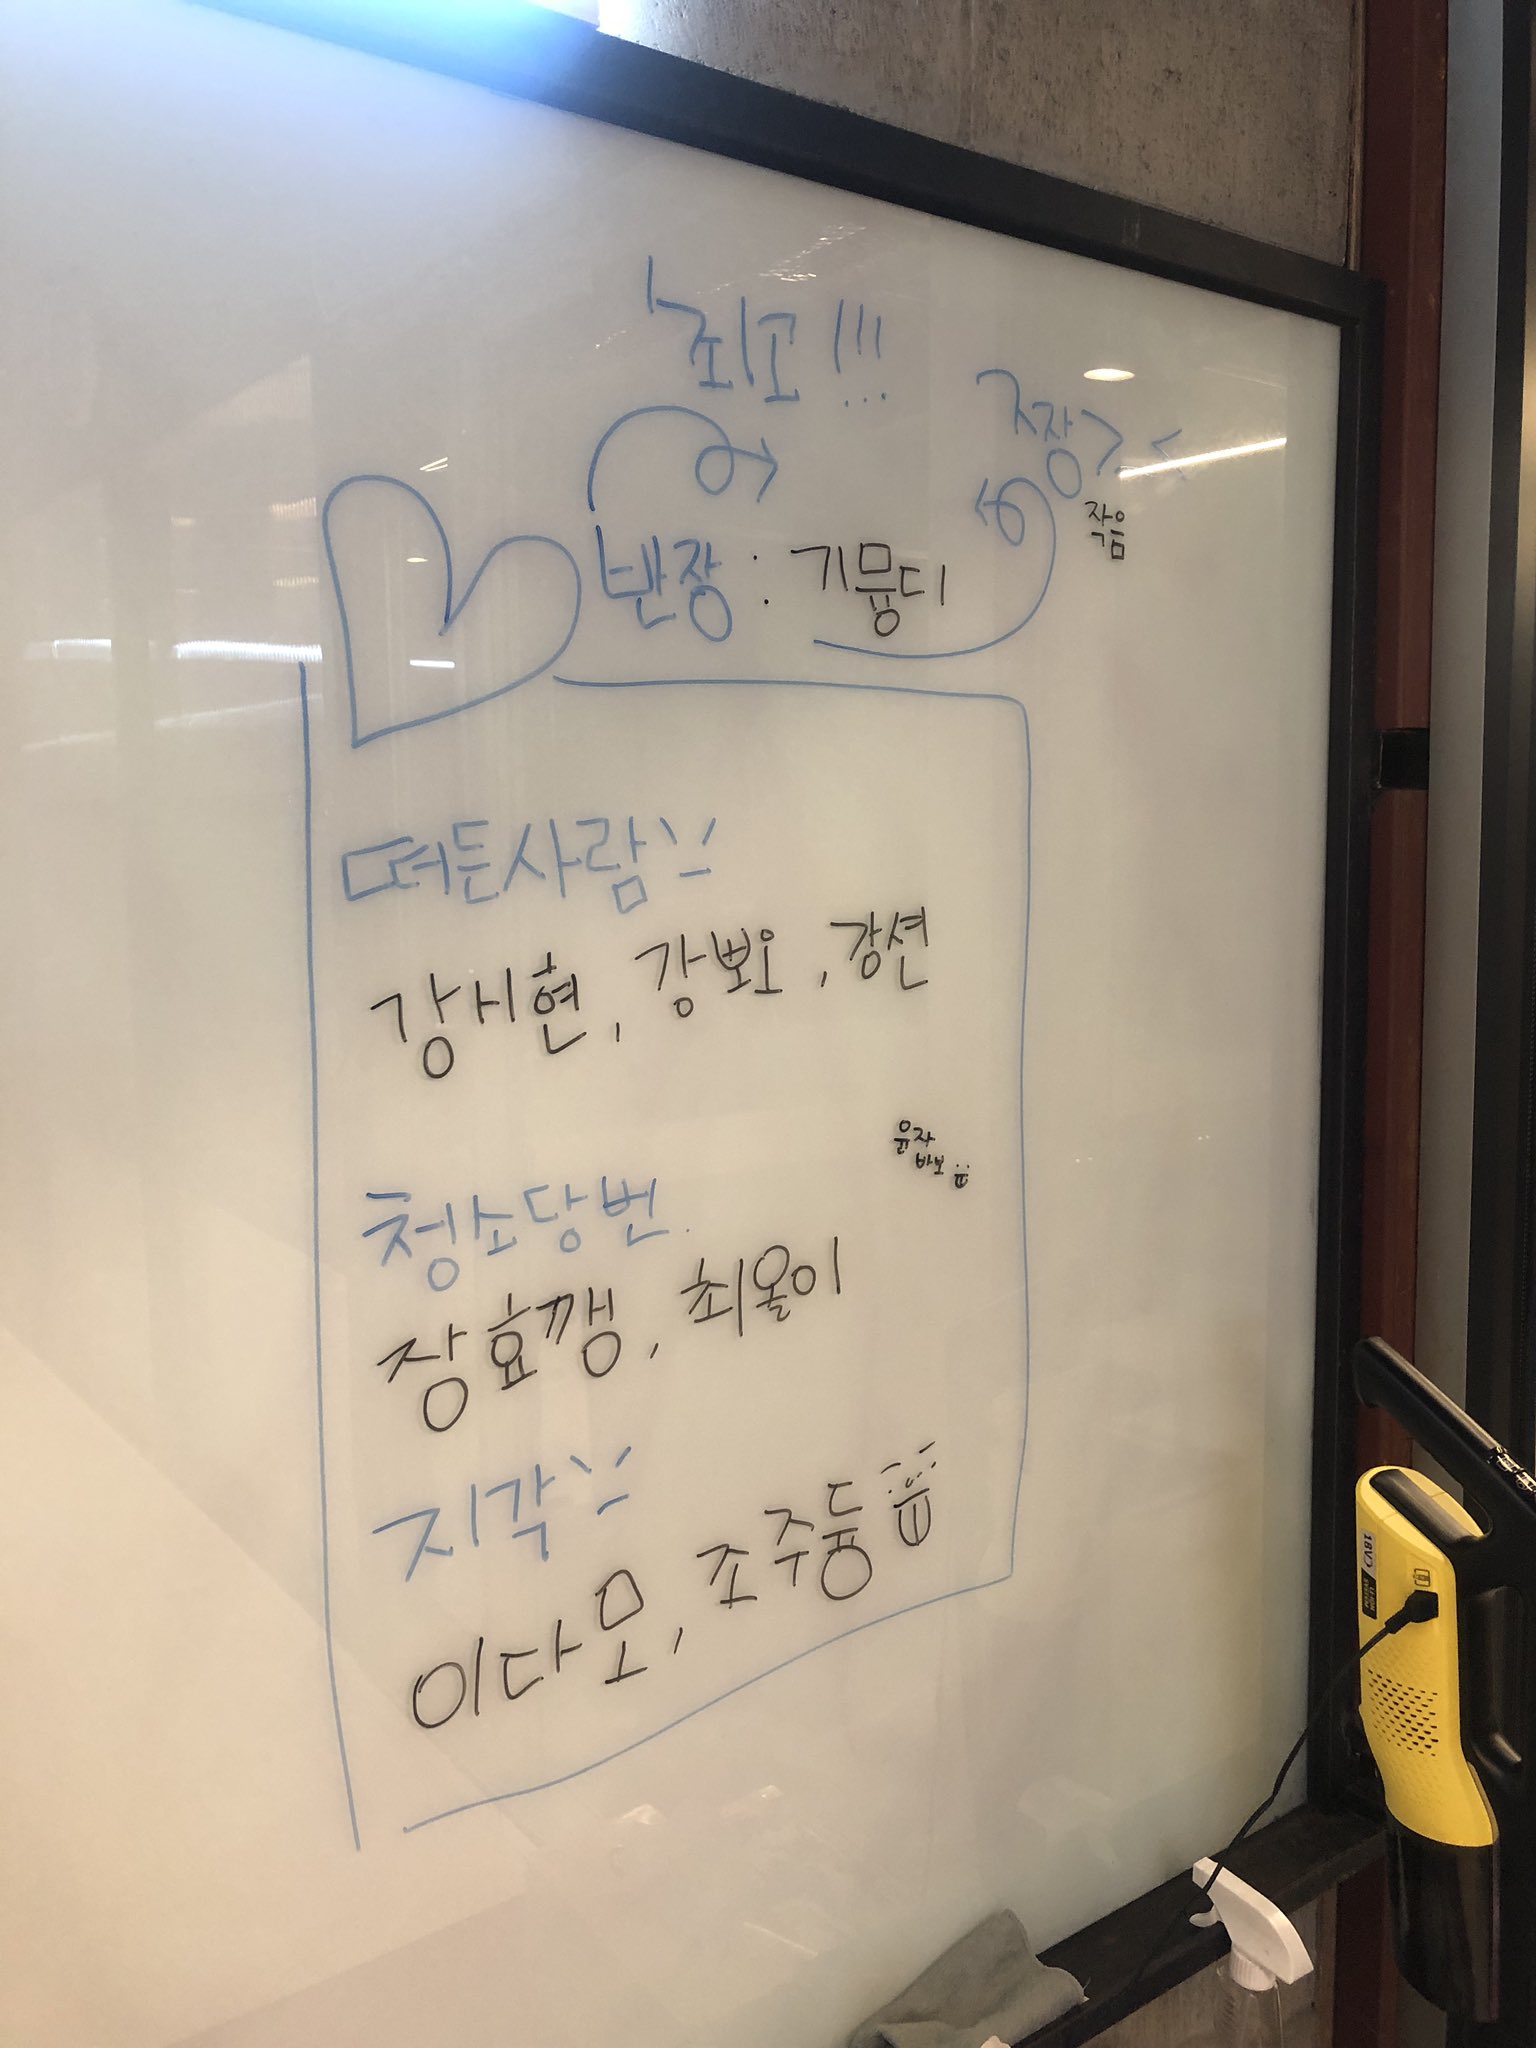 최고!!!
짱><
작음
반장 : 기뮹디
떠든사람
강시현, 강뾰, 강션
윤자
바보
청소당번
장효깽, 최올이
지각
이다모, 조주듐
18V